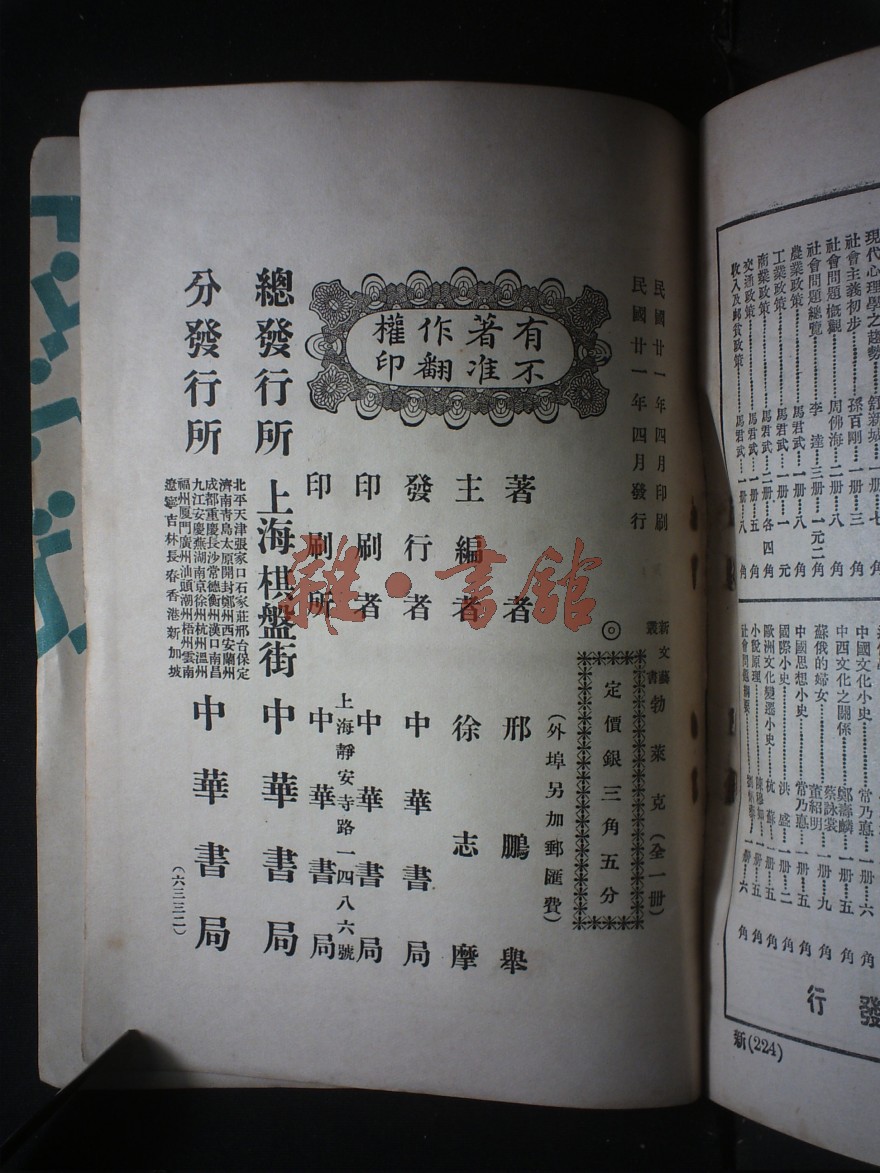 民國廿一年四月印刷
民國廿一年四月發行
新文藝叢書 勃萊克(全一冊)
◎定價銀三角五分
(外埠另加郵匯費)
有著作權
不准翻印
著者 邢鵬舉
主編者 徐志摩
發行者 中華書局
印刷者 中華書局
上海靜安寺路一四八六號
印刷所 中華書局
總發行所 上海棋盤街 中華書局
分發行所
北平天津張家口石家莊邢台保定
濟南靑島太原開封鄭州西安蘭州
成都重慶長沙常德衡州漢口南昌
九江安慶蕪湖南京徐州杭州溫州
福州厦門廣州汕頭潮州梧州雲南
遼寧吉林長春香港新加坡
中華書局
(六三三二)
雜·書館
現代心理學之趨勢……舒新城……一册……七角
社會主義初步……孫百剛……一册……三角
社會問題概觀……周佛海……二册……八角
社會問題總覽……李達……三册……一元二角
農業政策……馬君武……一册……八角
工業政策……馬君武……一册……一元
商業政策……馬君武……二册……各四角
交通政策……馬君武……一册……五角
收入及郵貲政策……馬君武……一册……八角
中國文化小史……常乃悳……一册……六角
中西文化之關係……鄭壽麟……一册……五角
蘇俄的婦女……蔡詠裳 董紹明……一册……九角
中國思想小史……常乃悳……一册……五角
國際小史……洪盛……一册……二角
歐洲文化變遷小史……杭蘇……一册……五角
小說原理……陳穆如……一册……五角
社會問題……一册……六角
發行
新(224)